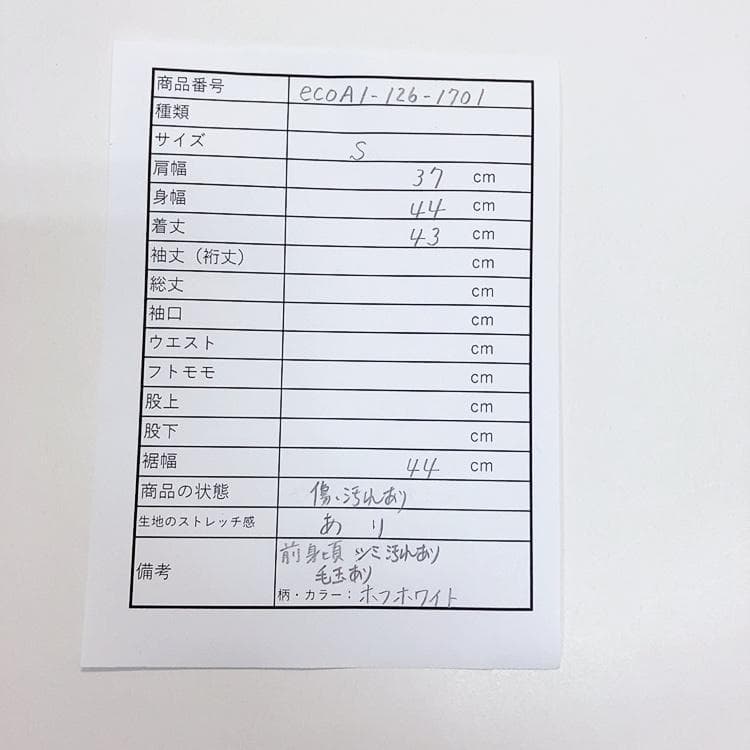 商品番号 ecoA1-126-1701
種類
サイズ S
肩幅 37 cm
身幅 44 cm
着丈 43 cm
袖丈（裄丈） cm
総丈 cm
袖口 cm
ウエスト cm
フトモモ cm
股上 cm
股下 cm
裾幅 44 cm
商品の状態 傷、汚れあり
生地のストレッチ感 あり
備考 前身頃 シミ汚れあり
毛玉あり
柄・カラー：ホフホワイト